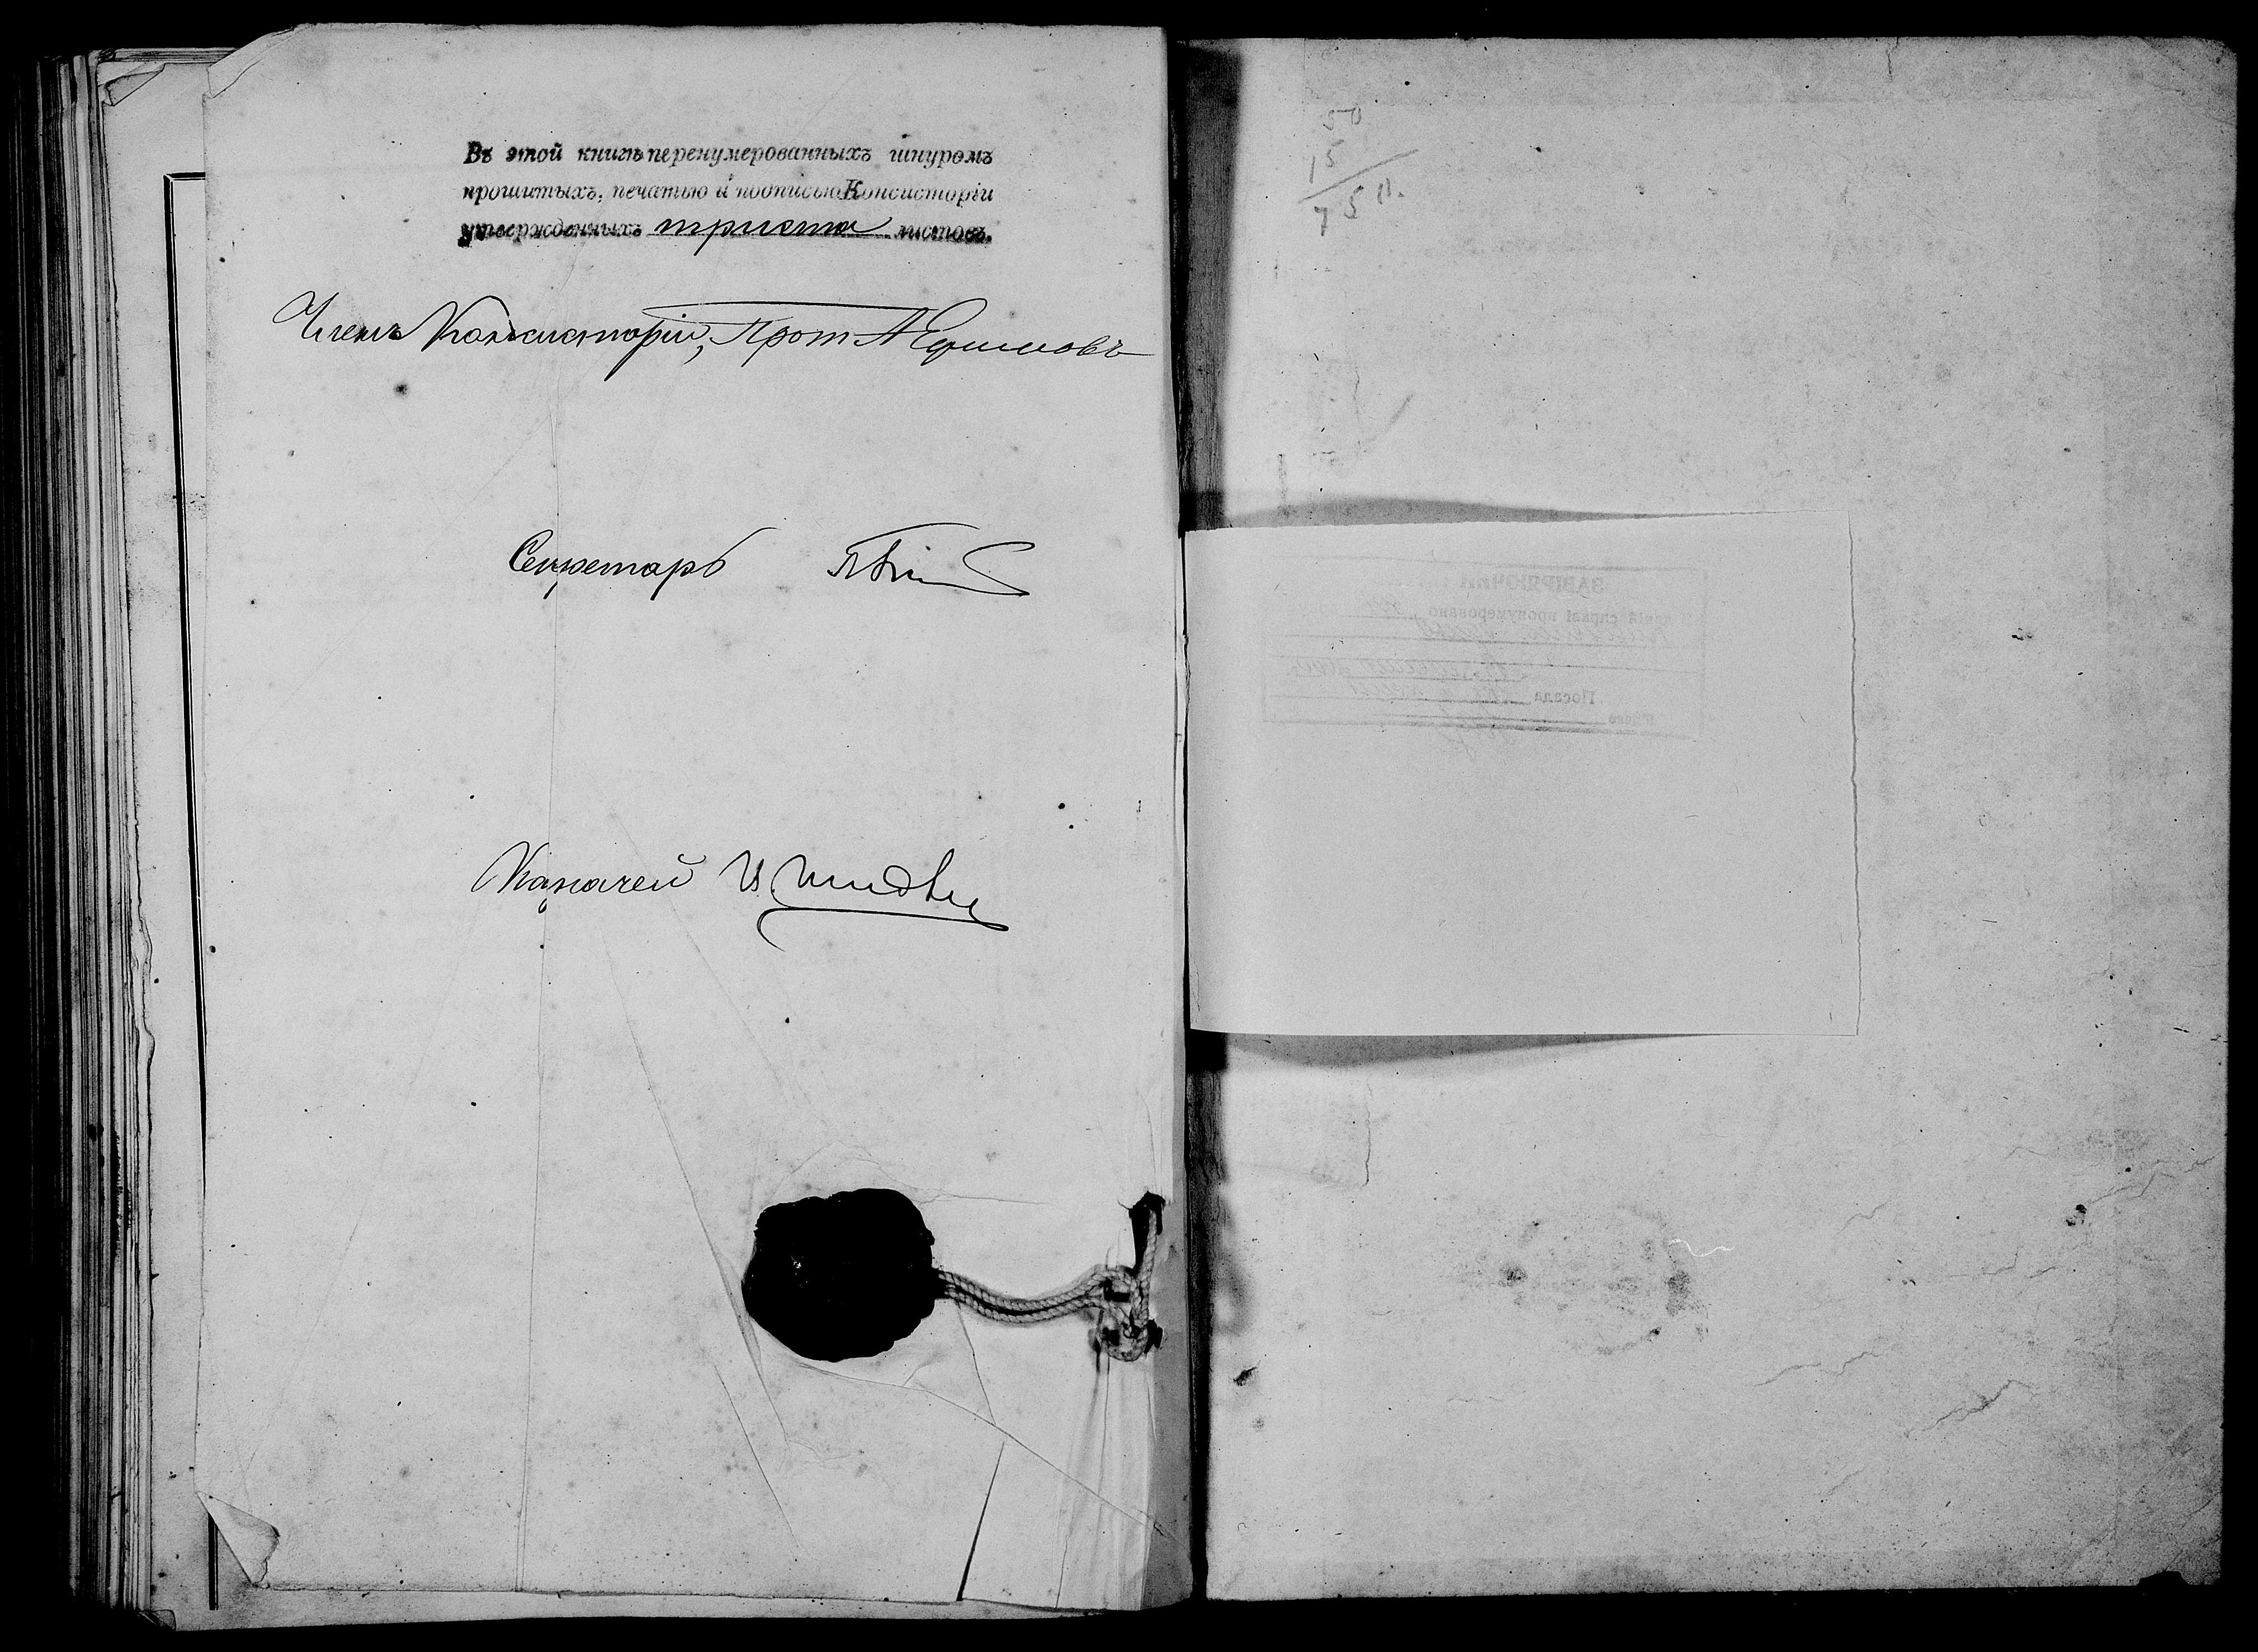 Въ этой книгѣ перенумерованныхъ шнуромъ
прошитыхъ, печатью и подписью Консисторіи
утвержденныхъ триста листовъ.
Членъ Консисторіи, Прот А Ефимовъ
Секретарь
Казначей И.
50
15
75 п.
ЗАВІРЮЧИЙ
справі пронумеровано
Посада